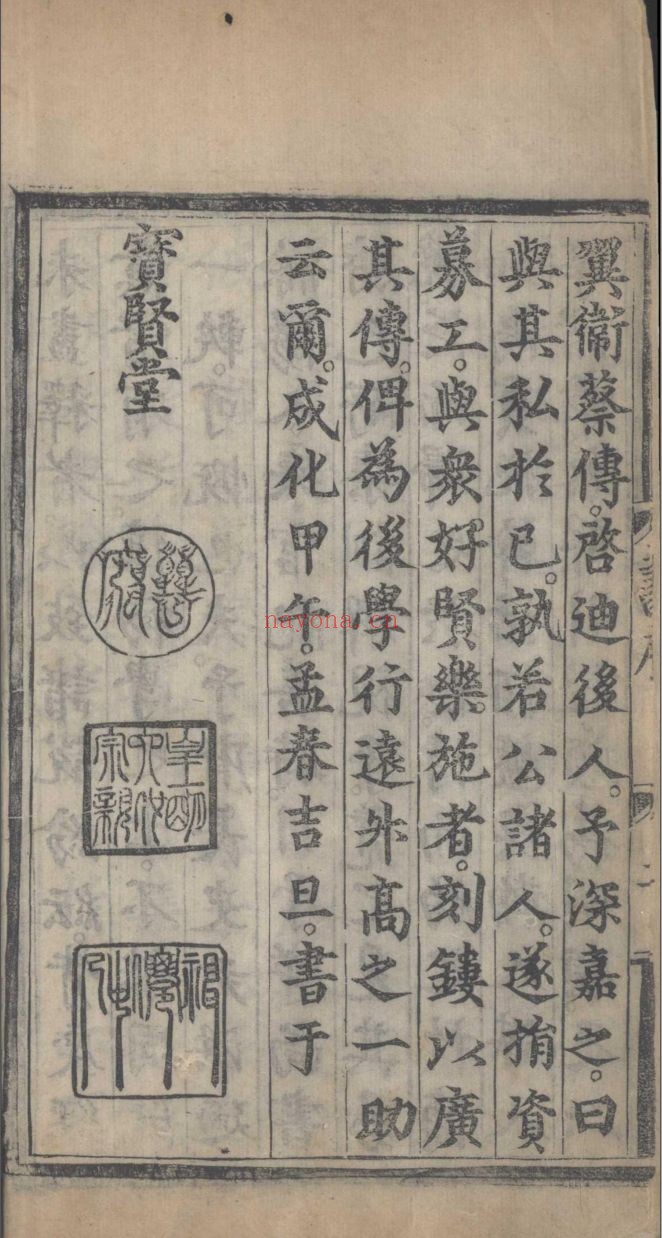 翼衞蔡傳。啓迪後人。予深嘉之。曰
與其私於已。孰若公諸人。遂捐資
募工。與衆好賢樂施者。刻鏤以廣
其傳。俾為後學行遠升高之一助
云爾。成化甲午。孟春吉旦。書于
寶賢堂
皇明宗親
nayona.cn